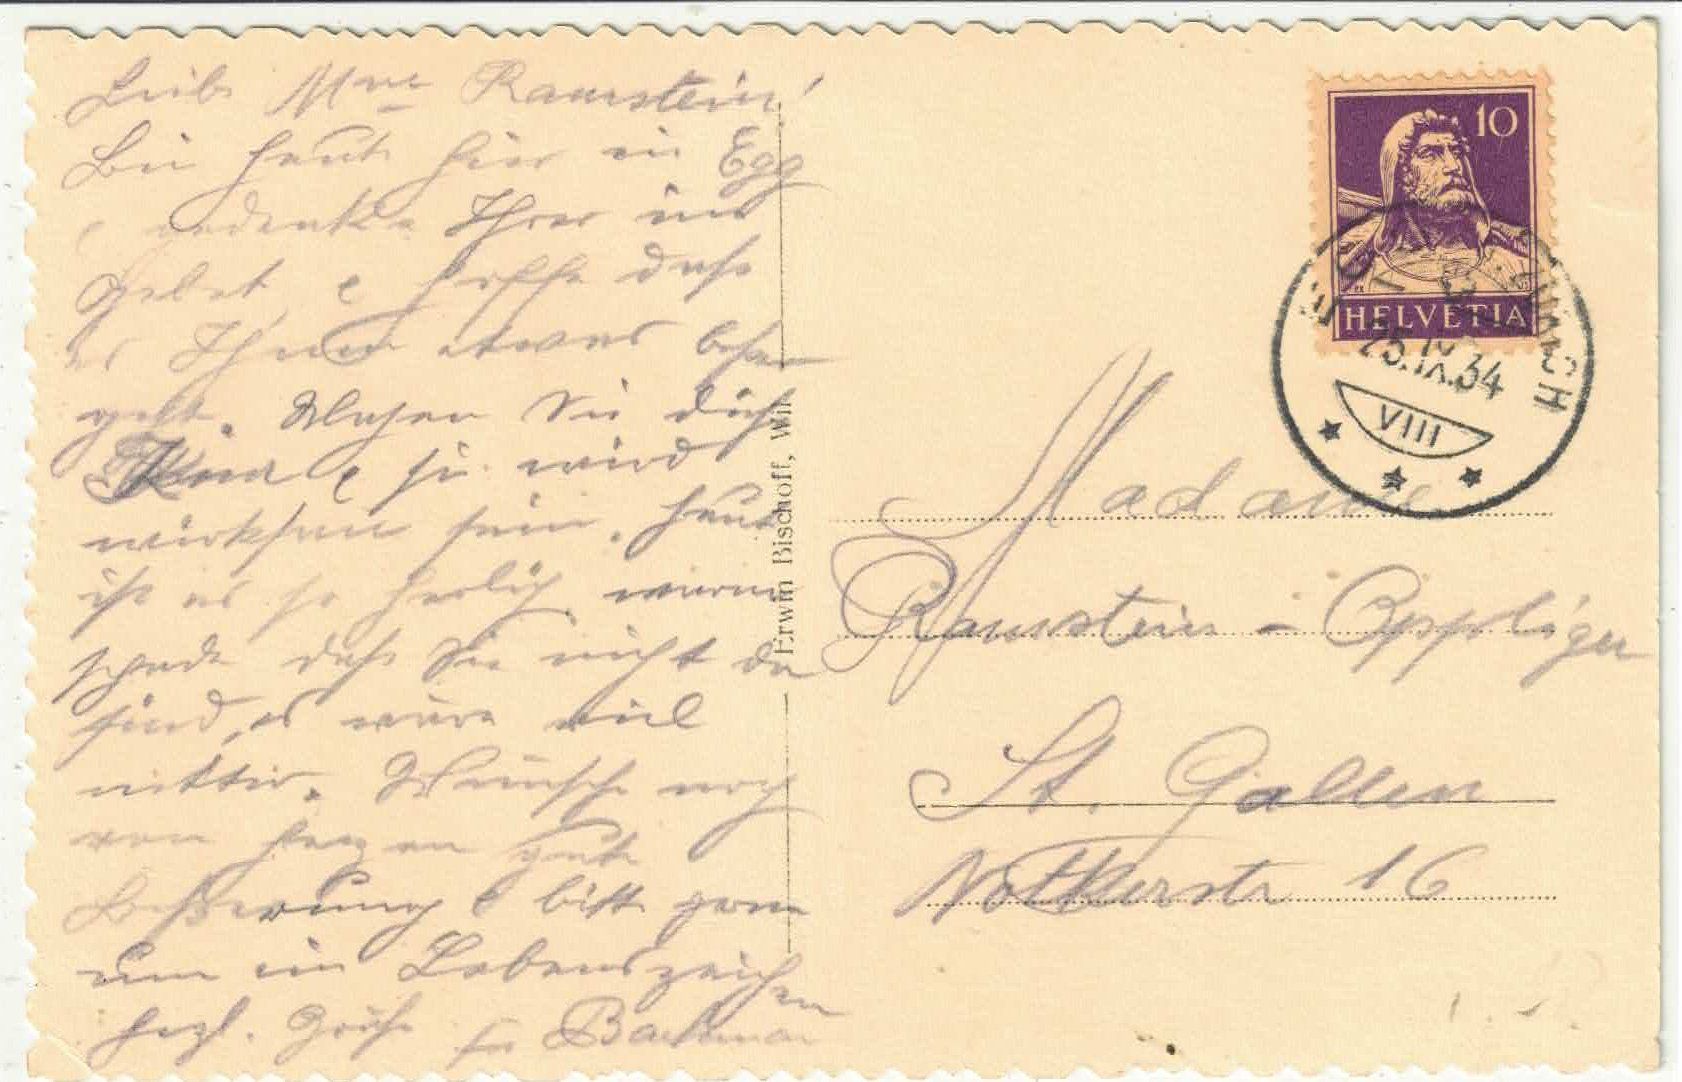 Liebe Mme Ramstein!
Bin heute hier in Egg
& gedenke Ihrer im
Gebet, & hoffe dass
es Ihnen etwas besser
geht. Machen Sie die
Kur & sie wird
wirksam sein. Heute
ist es so herlich warm
schade dass Sie nicht da
sind, es wäre viel
netter. Wünsche noch
von Herzen gute
Besserung & bitte gern
um ein Lebenszeichen
Herzl. Grüsse
Erwin Bischoff, Wil
10
HELVETIA
25.IX.34
VIII
Madame
Ramstein - Oppliger
St. Gallen
Notkerstr 16